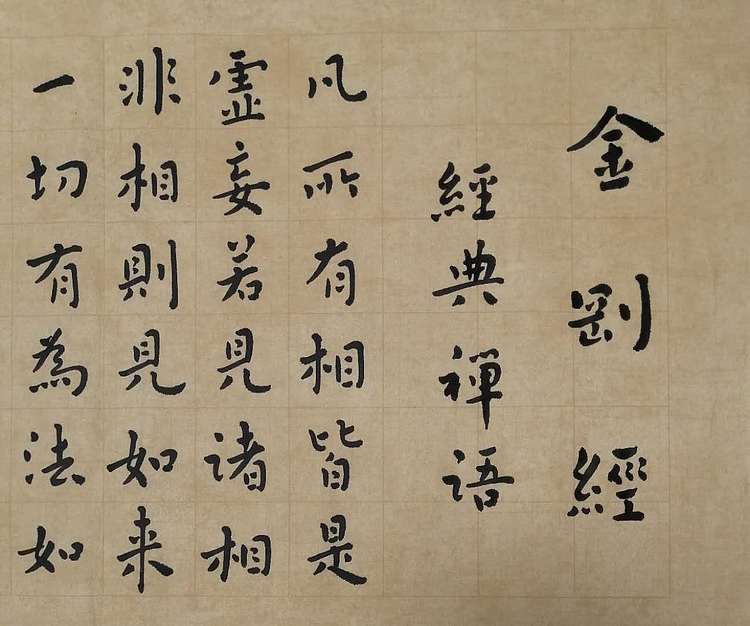 金剛經
經典禪语
凡所有相皆是
虛妄若見諸相
非相則見如来
一切有為法如